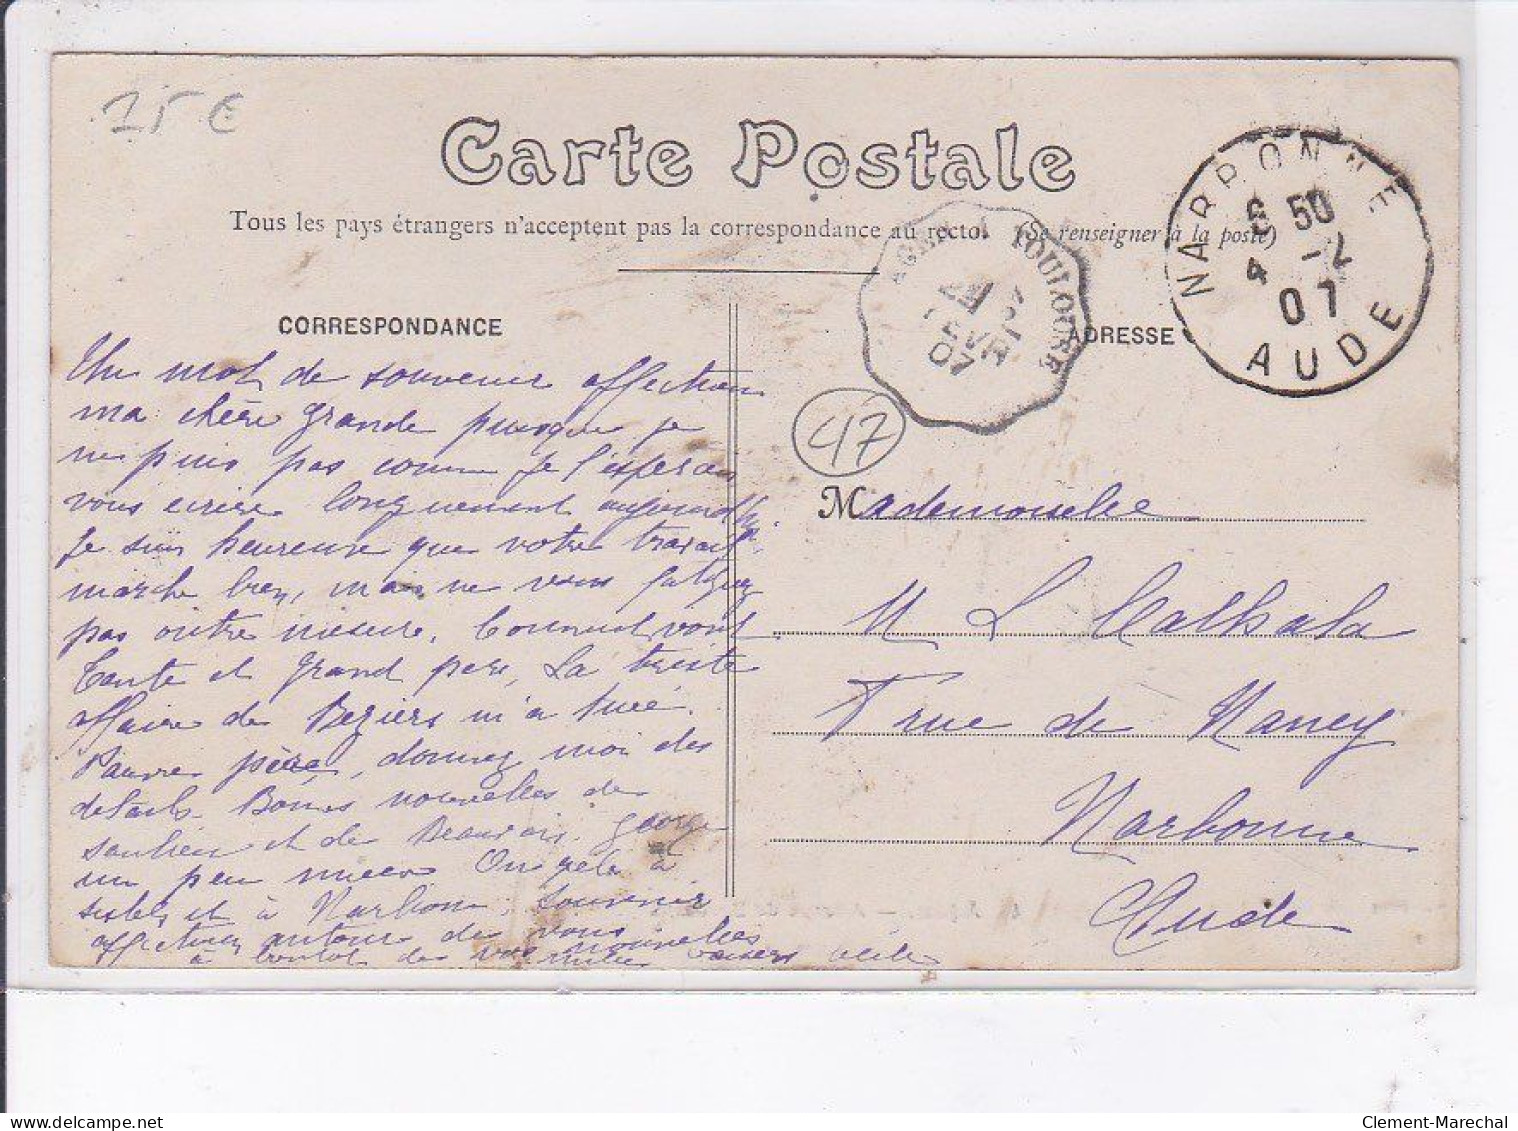 15 €
Carte Postale
Tous les pays étrangers n'acceptent pas la correspondance au recto. (Se renseigner à la poste)
NARBONNE
6 50
4 -2
07
AUDE
AGEN À TOULOUSE
FEVR
07
CORRESPONDANCE
ADRESSE
47
Un mot de souvenir affectueux
ma chère grande puisque je
ne puis pas comme je l'espérais
vous écrire longuement aujourd'hui.
Je suis heureuse que votre travail
marche bien, mais ne vous fatiguez
pas outre mesure. Comment vont
tante et grand père, La triste
affaire de Beziers m'a tuée.
Pauvre père, donnez moi des
détails. Bonnes nouvelles de
et de Beauvais. Georges
un peu mieux On gèle à
et à Narbonne. Souvenir
affectueux autour de vous
à bientôt de vos nouvelles
milles baisers
Mademoiselle
M L Calhala
7 rue de Nancy
Narbonne
Aude
Clement-Marechal